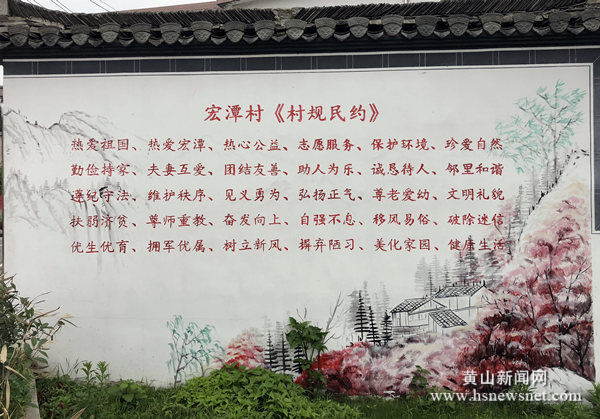 宏潭村《村规民约》
热爱祖国、热爱宏潭、热心公益、志愿服务、保护环境、珍爱自然
勤俭持家、夫妻互爱、团结友善、助人为乐、诚恳待人、邻里和谐
遵纪守法、维护秩序、见义勇为、弘扬正气、尊老爱幼、文明礼貌
扶弱济贫、尊师重教、奋发向上、自强不息、移风易俗、破除迷信
优生优育、拥军优属、树立新风、摒弃陋习、美化家园、健康生活
黄山新闻网
www.hsnewsnet.com